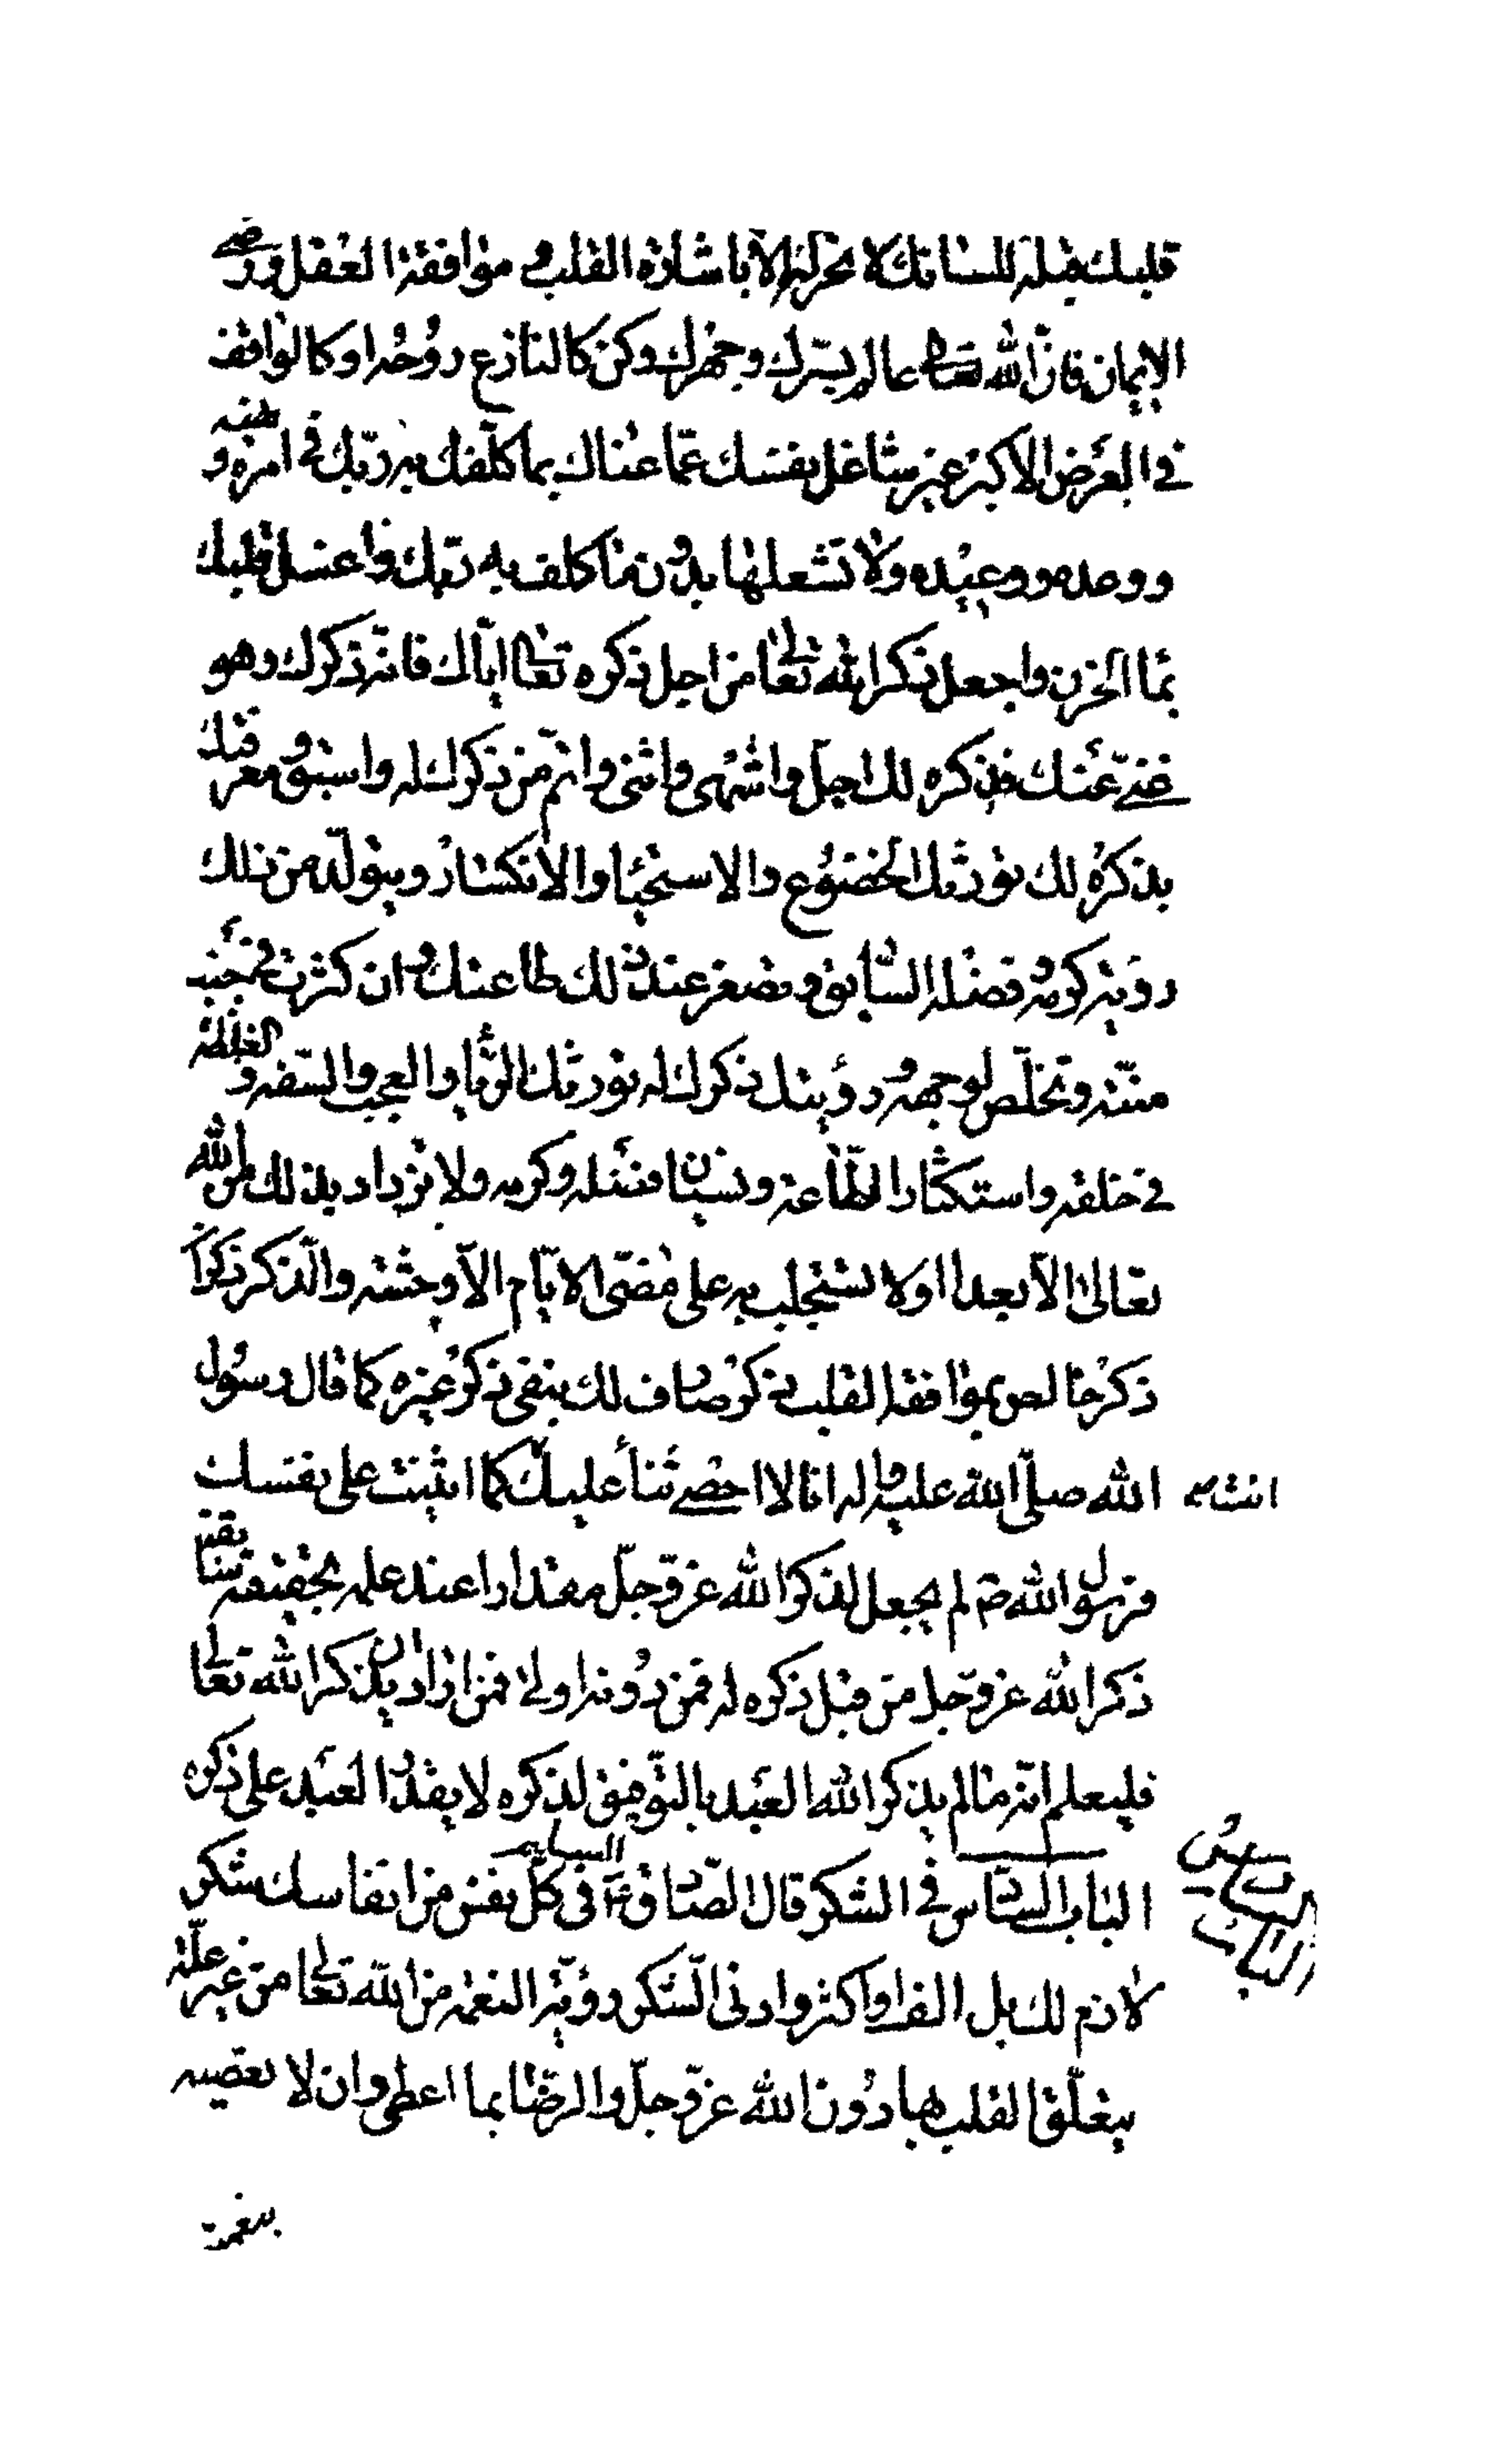 قلبك قبلة للسانك لا تحركه الا باشارة القلب و موافقة العقل ورضى
الايمان فان الله تعالى عالم بسرك وجهرك وكن كالنازع روحه او كالواقف
في العرض الاكبر غير شاغل نفسك عما عناك بما كلفك به ربك في امره ونهيه
و وعده و وعيده ولا تشغلها بدون ما كلف به ربك واغسل قلبك
بماء الحزن واجعل ذكر الله تعالى من اجل ذكره تعالى اياك فانه ذكرك وهو
غني عنك فذكره لك اجل واشهى واثنى واتم من ذكرك له واسبق ومعرفتك
بذكره لك تورثك الخضوع والاستحياء والانكسار ويتولد من ذلك
رؤية كرمه وفضله السابق وتصغر عند ذلك طاعتك وان كثرت في جنب
مننه وتخلص لوجهه ورؤيتك ذكرك له تورثك الريا والعجب والسفه والغلظة
في خلقه واستكثار الطاعة ونسيان فضله وكرمه ولا تزداد بذلك من الله
تعالى الا بعدا ولا تستجلب به على مضى الايام الا وحشة والذكر ذكران
ذكر خالص بموافقة القلب وذكر صارف لك ينفى ذكر غيره كما قال رسول
الله صلى الله عليه واله انا لا احصى ثناء عليك انت كما اثنيت على نفسك
فرسول الله ص لم يجعل لذكر الله عز وجل مقدارا عند علمه بحقيقة سابقة
ذكر الله عز وجل من قبل ذكره له فمن دونه اولى فمن اراد ان يذكر الله تعالى
فليعلم انه ما لم يذكر الله العبد بالتوفيق لذكره لا يقدر العبد على ذكره
الباب السادس في الشكر قال الصادق عليه السلام في كل نفس من انفاسك شكر
لازم لك بل الف او اكثر وادنى الشكر رؤية النعمة من الله تعالى من غير علة
يتعلق القلب بها دون الله عز وجل والرضا بما اعطى وان لا تعصيه
بنعمته